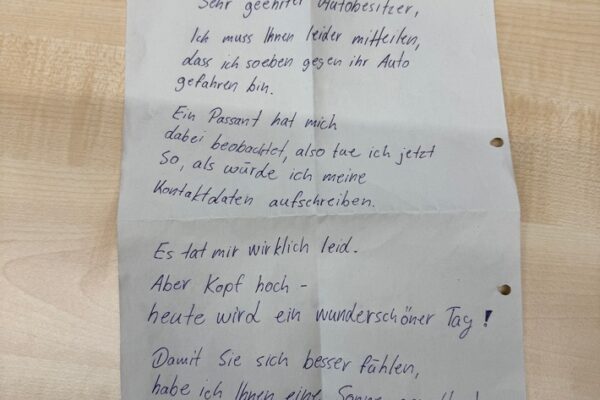 Sehr geehrter Autobesitzer,
Ich muss Ihnen leider mitteilen,
dass ich soeben gegen ihr Auto
gefahren bin.
Ein Passant hat mich
dabei beobachtet, also tue ich jetzt
So, als würde ich meine
Kontaktdaten aufschreiben.
Es tat mir wirklich leid.
Aber Kopf hoch -
heute wird ein wunderschöner Tag!
Damit Sie sich besser fühlen,
habe ich Ihnen eine Sonne